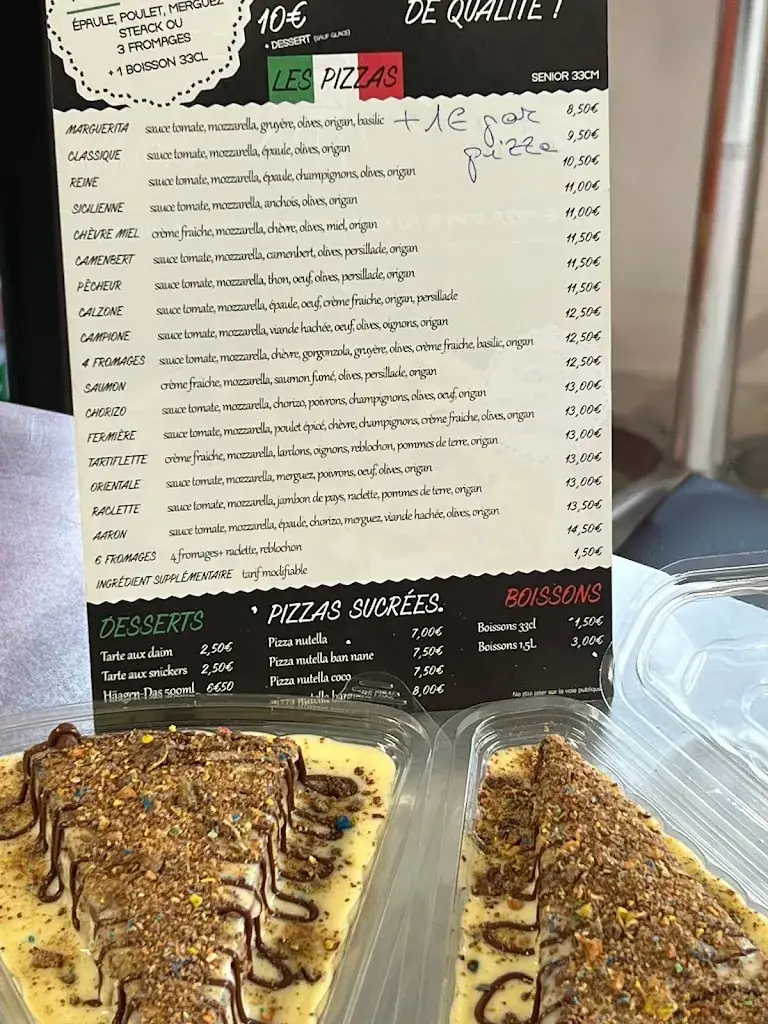 ÉPAULE, POULET, MERGUEZ
STEACK OU
3 FROMAGES
+ 1 BOISSON 33CL
10€
+ DESSERT (SAUF GLACE)
DE QUALITÉ !
LES PIZZAS
SENIOR 33CM
+ 1€ par pizza
MARGUERITA sauce tomate, mozzarella, gruyère, olives, origan, basilic 8,50€
CLASSIQUE sauce tomate, mozzarella, épaule, olives, origan 9,50€
REINE sauce tomate, mozzarella, épaule, champignons, olives, origan 10,50€
SICILIENNE sauce tomate, mozzarella, anchois, olives, origan 11,00€
CHÈVRE MIEL crème fraiche, mozzarella, chèvre, olives, miel, origan 11,00€
CAMENBERT sauce tomate, mozzarella, camenbert, olives, persillade, origan 11,50€
PÊCHEUR sauce tomate, mozzarella, thon, oeuf, olives, persillade, origan 11,50€
CALZONE sauce tomate, mozzarella, épaule, oeuf, crème fraiche, origan, persillade 11,50€
CAMPIONE sauce tomate, mozzarella, viande hachée, oeuf, olives, oignons, origan 12,50€
4 FROMAGES sauce tomate, mozzarella, chèvre, gorgonzola, gruyère, olives, crème fraiche, basilic, origan 12,50€
SAUMON crème fraiche, mozzarella, saumon fumé, olives, persillade, origan 12,50€
CHORIZO sauce tomate, mozzarella, chorizo, poivrons, champignons, olives, oeuf, origan 13,00€
FERMIÈRE sauce tomate, mozzarella, poulet épicé, chèvre, champignons, crème fraiche, olives, origan 13,00€
TARTIFLETTE crème fraiche, mozzarella, lardons, oignons, reblochon, pommes de terre, origan 13,00€
ORIENTALE sauce tomate, mozzarella, merguez, poivrons, oeuf, olives, origan 13,00€
RACLETTE sauce tomate, mozzarella, jambon de pays, raclette, pommes de terre, origan 13,00€
AARON sauce tomate, mozzarella, épaule, chorizo, merguez, viande hachée, olives, origan 13,50€
6 FROMAGES 4 fromages+ raclette, reblochon 14,50€
INGRÉDIENT SUPPLÉMENTAIRE tarif modifiable 1,50€
DESSERTS
Tarte aux daim 2,50€
Tarte aux snickers 2,50€
Häagen-Das 500ml 6€50
PIZZAS SUCRÉES.
Pizza nutella 7,00€
Pizza nutella ban nane 7,50€
Pizza nutella coco 7,50€
8,00€
BOISSONS
Boissons 33cl 1,50€
Boissons 1,5L 3,00€
Ne pas jeter sur la voie publique